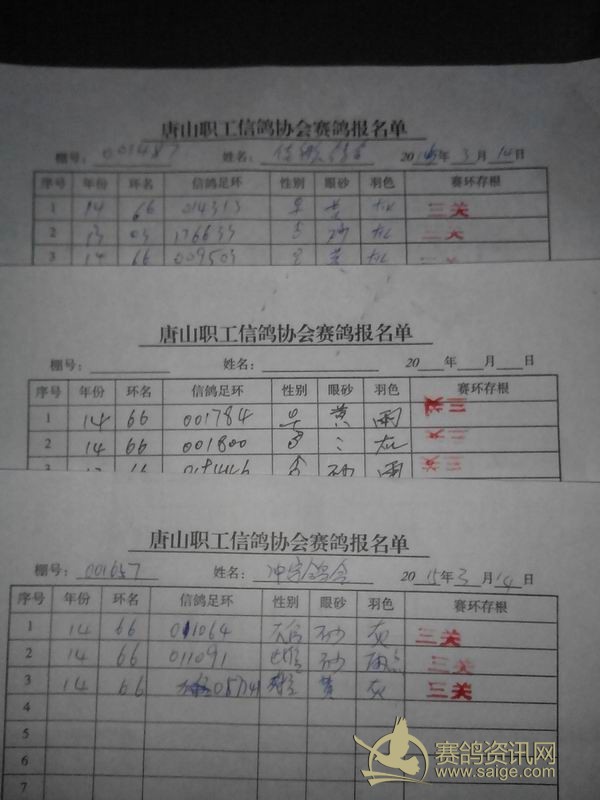 唐山职工信鸽协会赛鸽报名单
棚号: 001487 姓名: 2015年3月14日
序号 年份 环名 信鸽足环 性别 眼砂 羽色 赛环存根
1 14 66 014313 黄 灰 三关
2 13 03 176633 砂 灰 三关
3 14 66 009503 黄 灰
唐山职工信鸽协会赛鸽报名单
棚号: 姓名: 20 年 月 日
序号 年份 环名 信鸽足环 性别 眼砂 羽色 赛环存根
1 14 66 001784 黄 雨 三关
2 14 66 001800 灰 三关
3 砂 雨 三关
唐山职工信鸽协会赛鸽报名单
棚号: 001657 姓名: 冲宇鸽舍 2015年3月14日
序号 年份 环名 信鸽足环 性别 眼砂 羽色 赛环存根
1 14 66 011064 砂 灰 三关
2 14 66 011091 雄 砂 雨点 三关
3 14 66 雄 黄 灰 三关
4
5
6
7
赛鸽资讯网
www.saige.com